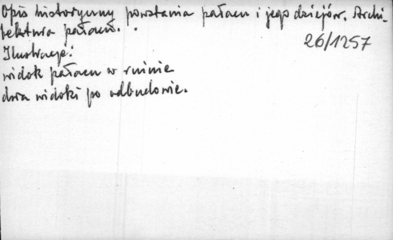 Opis historyczny powstania pałacu i jego dziejów. Archi-
tektura pałacu.
26/1257
Ilustracje:
widok pałacu w ruinie
dwa widoki po odbudowie.